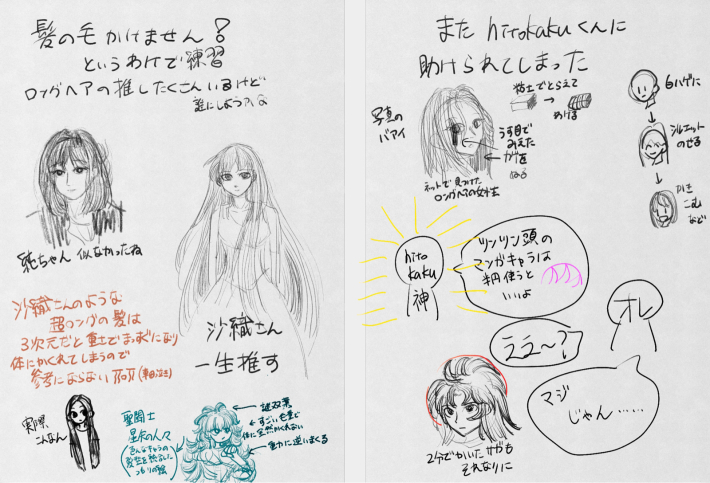 髪の毛かけません?
というわけで練習
ロングヘアの推したくさんいるけど
誰にしようかな
純ちゃん 似なかったね
沙織さん
一生推す
沙織さんのような
超ロングの髪は
3次元だと重力でまっすぐになり
体にかくれてしまうので
参考にならない
実際
こんなん
聖闘士
星矢の人々
謎双葉
すごい毛量で
体に全然かくれない
重力に逆いまくる
また hitokakuくんに
助けられてしまった
写真の
バアイ
粘土でとらえて
わける
うす目で
みえた
カゲを
ぬる
ネットで見つけた
ロングヘアの女性
白ハゲに
シルエット
のせる
かき
こむ
など
hito
kaku
神
ツンツン頭の
マンガキャラは
半円使うと
いいよ
オレ
ええ〜?!
マジ
じゃん……
2分でかいたサガも
それなりに